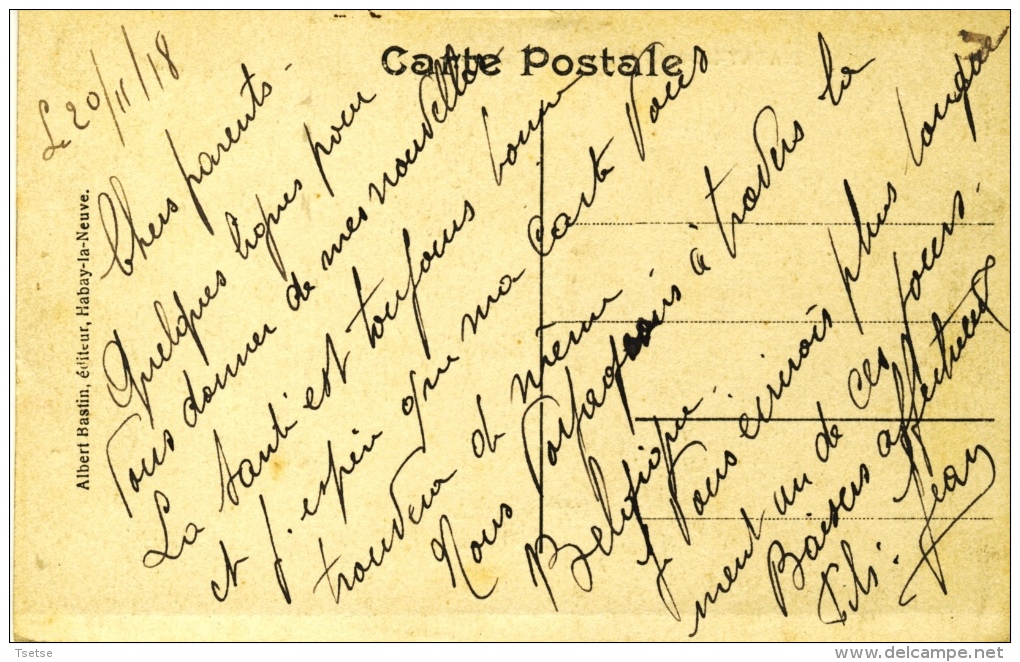 Carte Postale
Le 20/11/18
Chers parents.
Quelques lignes pour
vous donner de mes nouvelles
La santé est toujours bonne
et j'espère que ma carte vous
trouvera de même
Nous voyageons à travers la
Belgique.
Je vous écrirais plus longue
ment un de ces jours.
Baisers affectueux
Fils. Jean
Albert Bastin, éditeur, Habay-la-Neuve.
Tsetse
www.delcampe.net